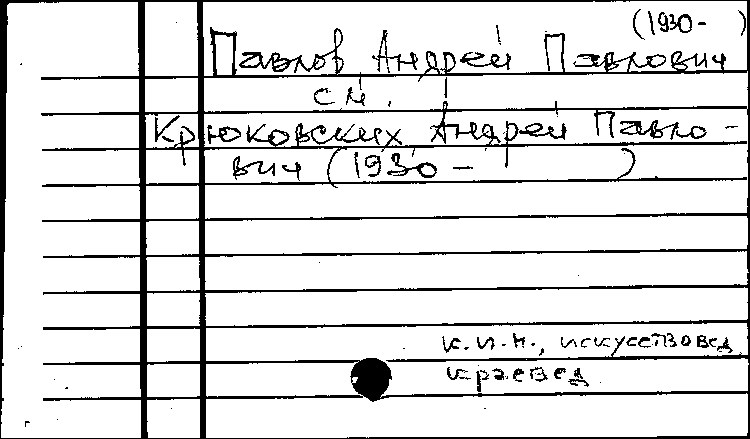 (1930- )
Павлов, Андрей Павлович
см.
Крюковских, Андрей Павло-
вич (1930- )
к.и.н., искусствовед
краевед